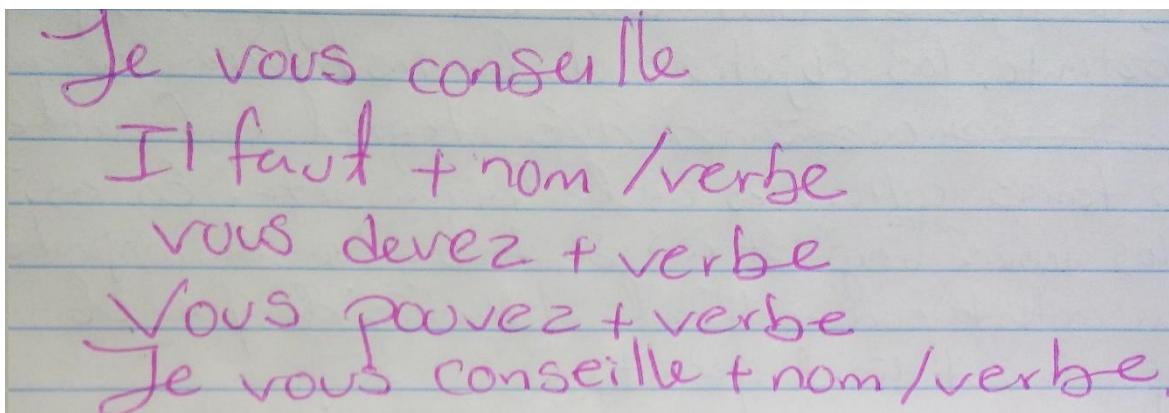 Je vous conseille
Il faut + nom /verbe
vous devez + verbe
Vous pouvez + verbe
Je vous conseille + nom /verbe